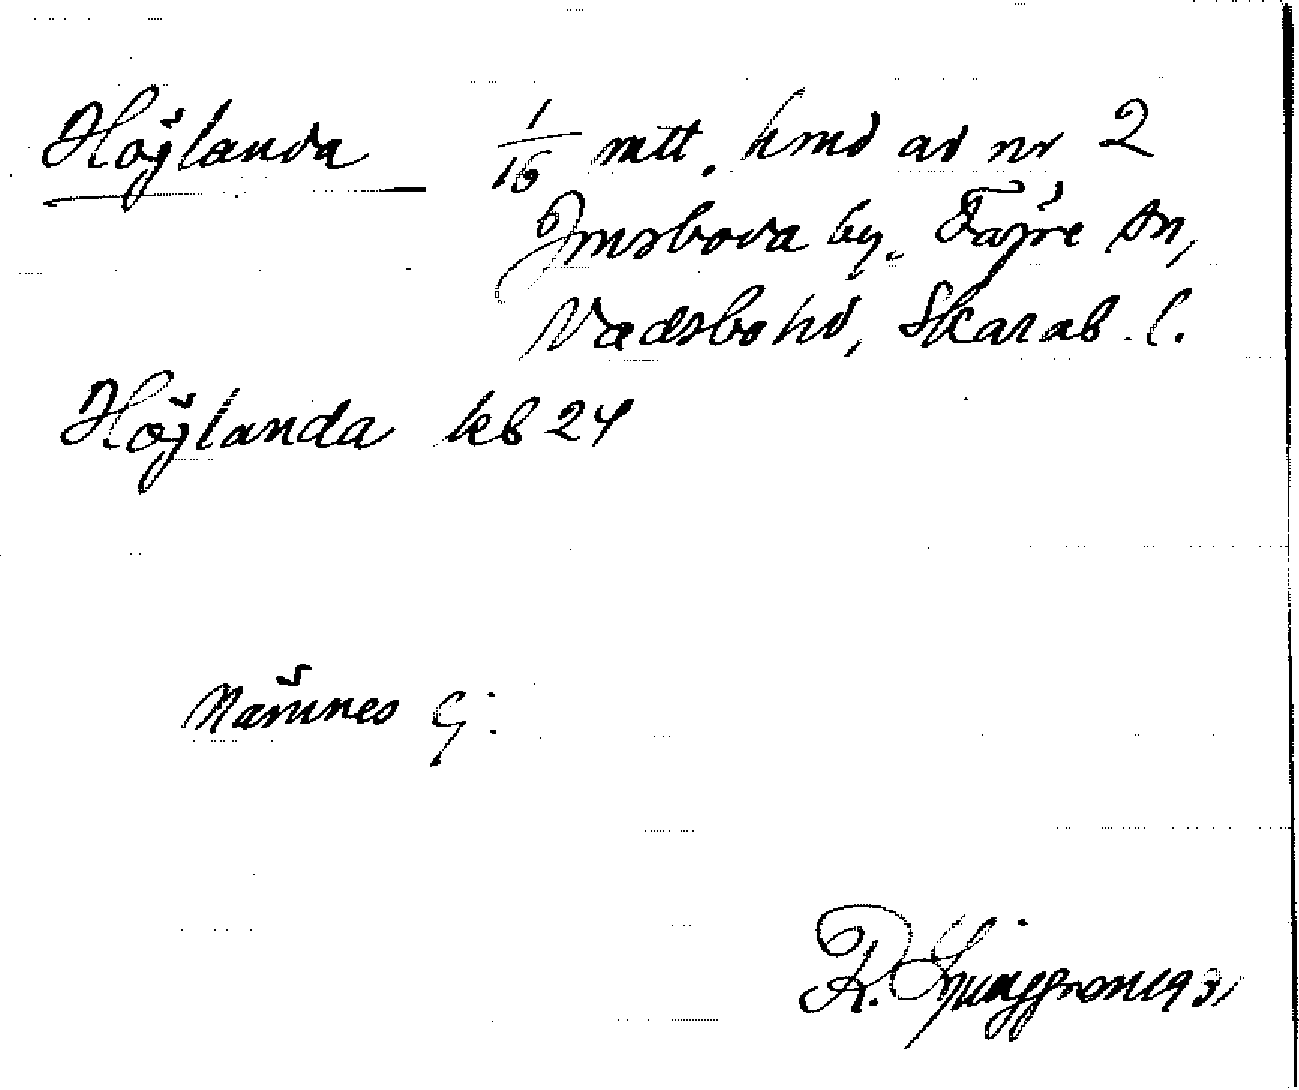 Höjlanda 1/16 mtt. hmd av nr 2
Jmsboda by, Fägre sn,
Vadsbo hd, Skarab. l.
Höjlanda kb 24
Nämnes ej:
R. Ljunggren 1931